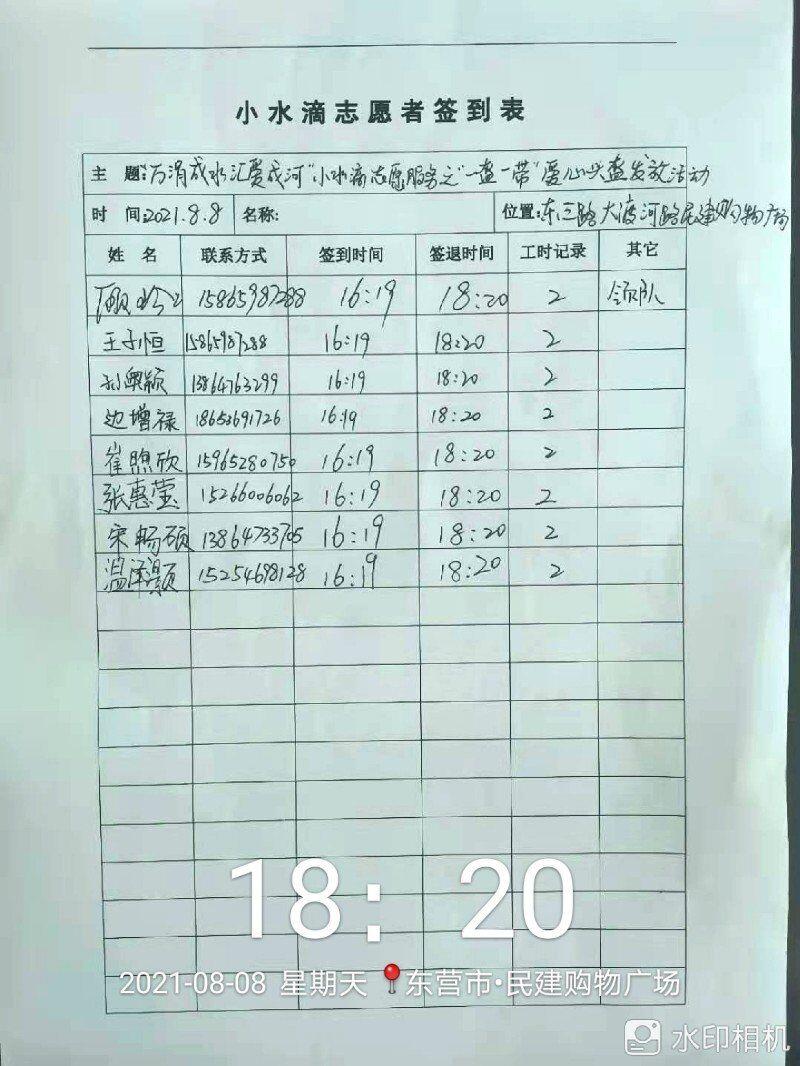 小水滴志愿者签到表
主 题:万涓成水汇爱成河"小水滴志愿服务之"一盔一带"爱心头盔发放活动
时 间:2021.8.8 名称: 位置:东三路大渡河路民建购物广场
姓 名 联系方式 签到时间 签退时间 工时记录 其它
15865987288 16:19 18:20 2 领队
王子恒 15865987288 16:19 18:20 2
孙奥颖 13864763299 16:19 18:20 2
边增禄 18653691726 16:19 18:20 2
崔煦欣 15965280750 16:19 18:20 2
张惠莹 15266006062 16:19 18:20 2
宋畅硕 13864733705 16:19 18:20 2
温泽灏 15254698128 16:19 18:20 2
18:20
2021-08-08 星期天 东营市·民建购物广场
水印相机